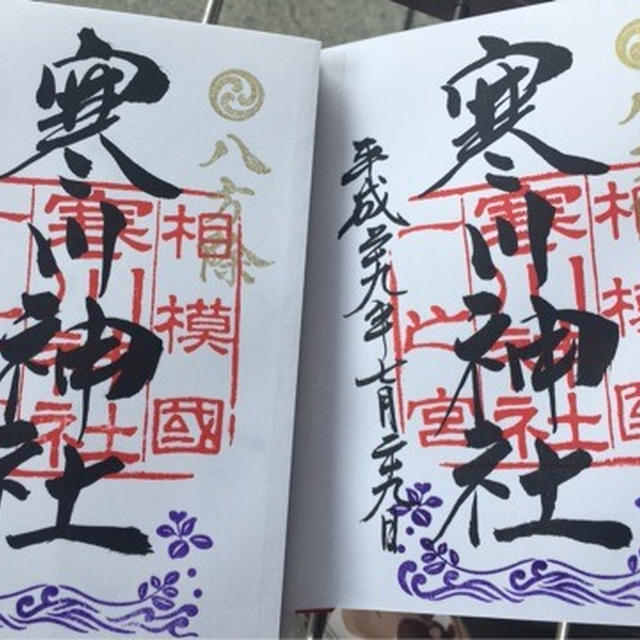 寒川神社
相模國
寒川神社
一之宮
平成二十九年七月二十九日
八方除
寒川神社
相模國
寒川神社